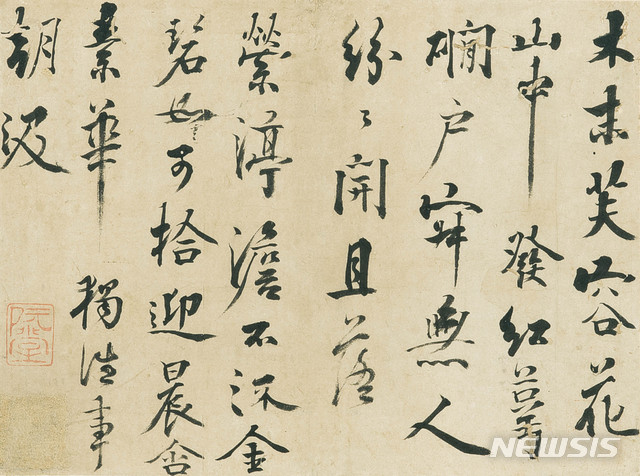 木末芙蓉花
山中發紅萼
磵戶寂無人
紛〻開且落
縈渟澹不流金
碧如可拾迎晨含
素華獨往事
朝汲
阮堂
NEWSIS